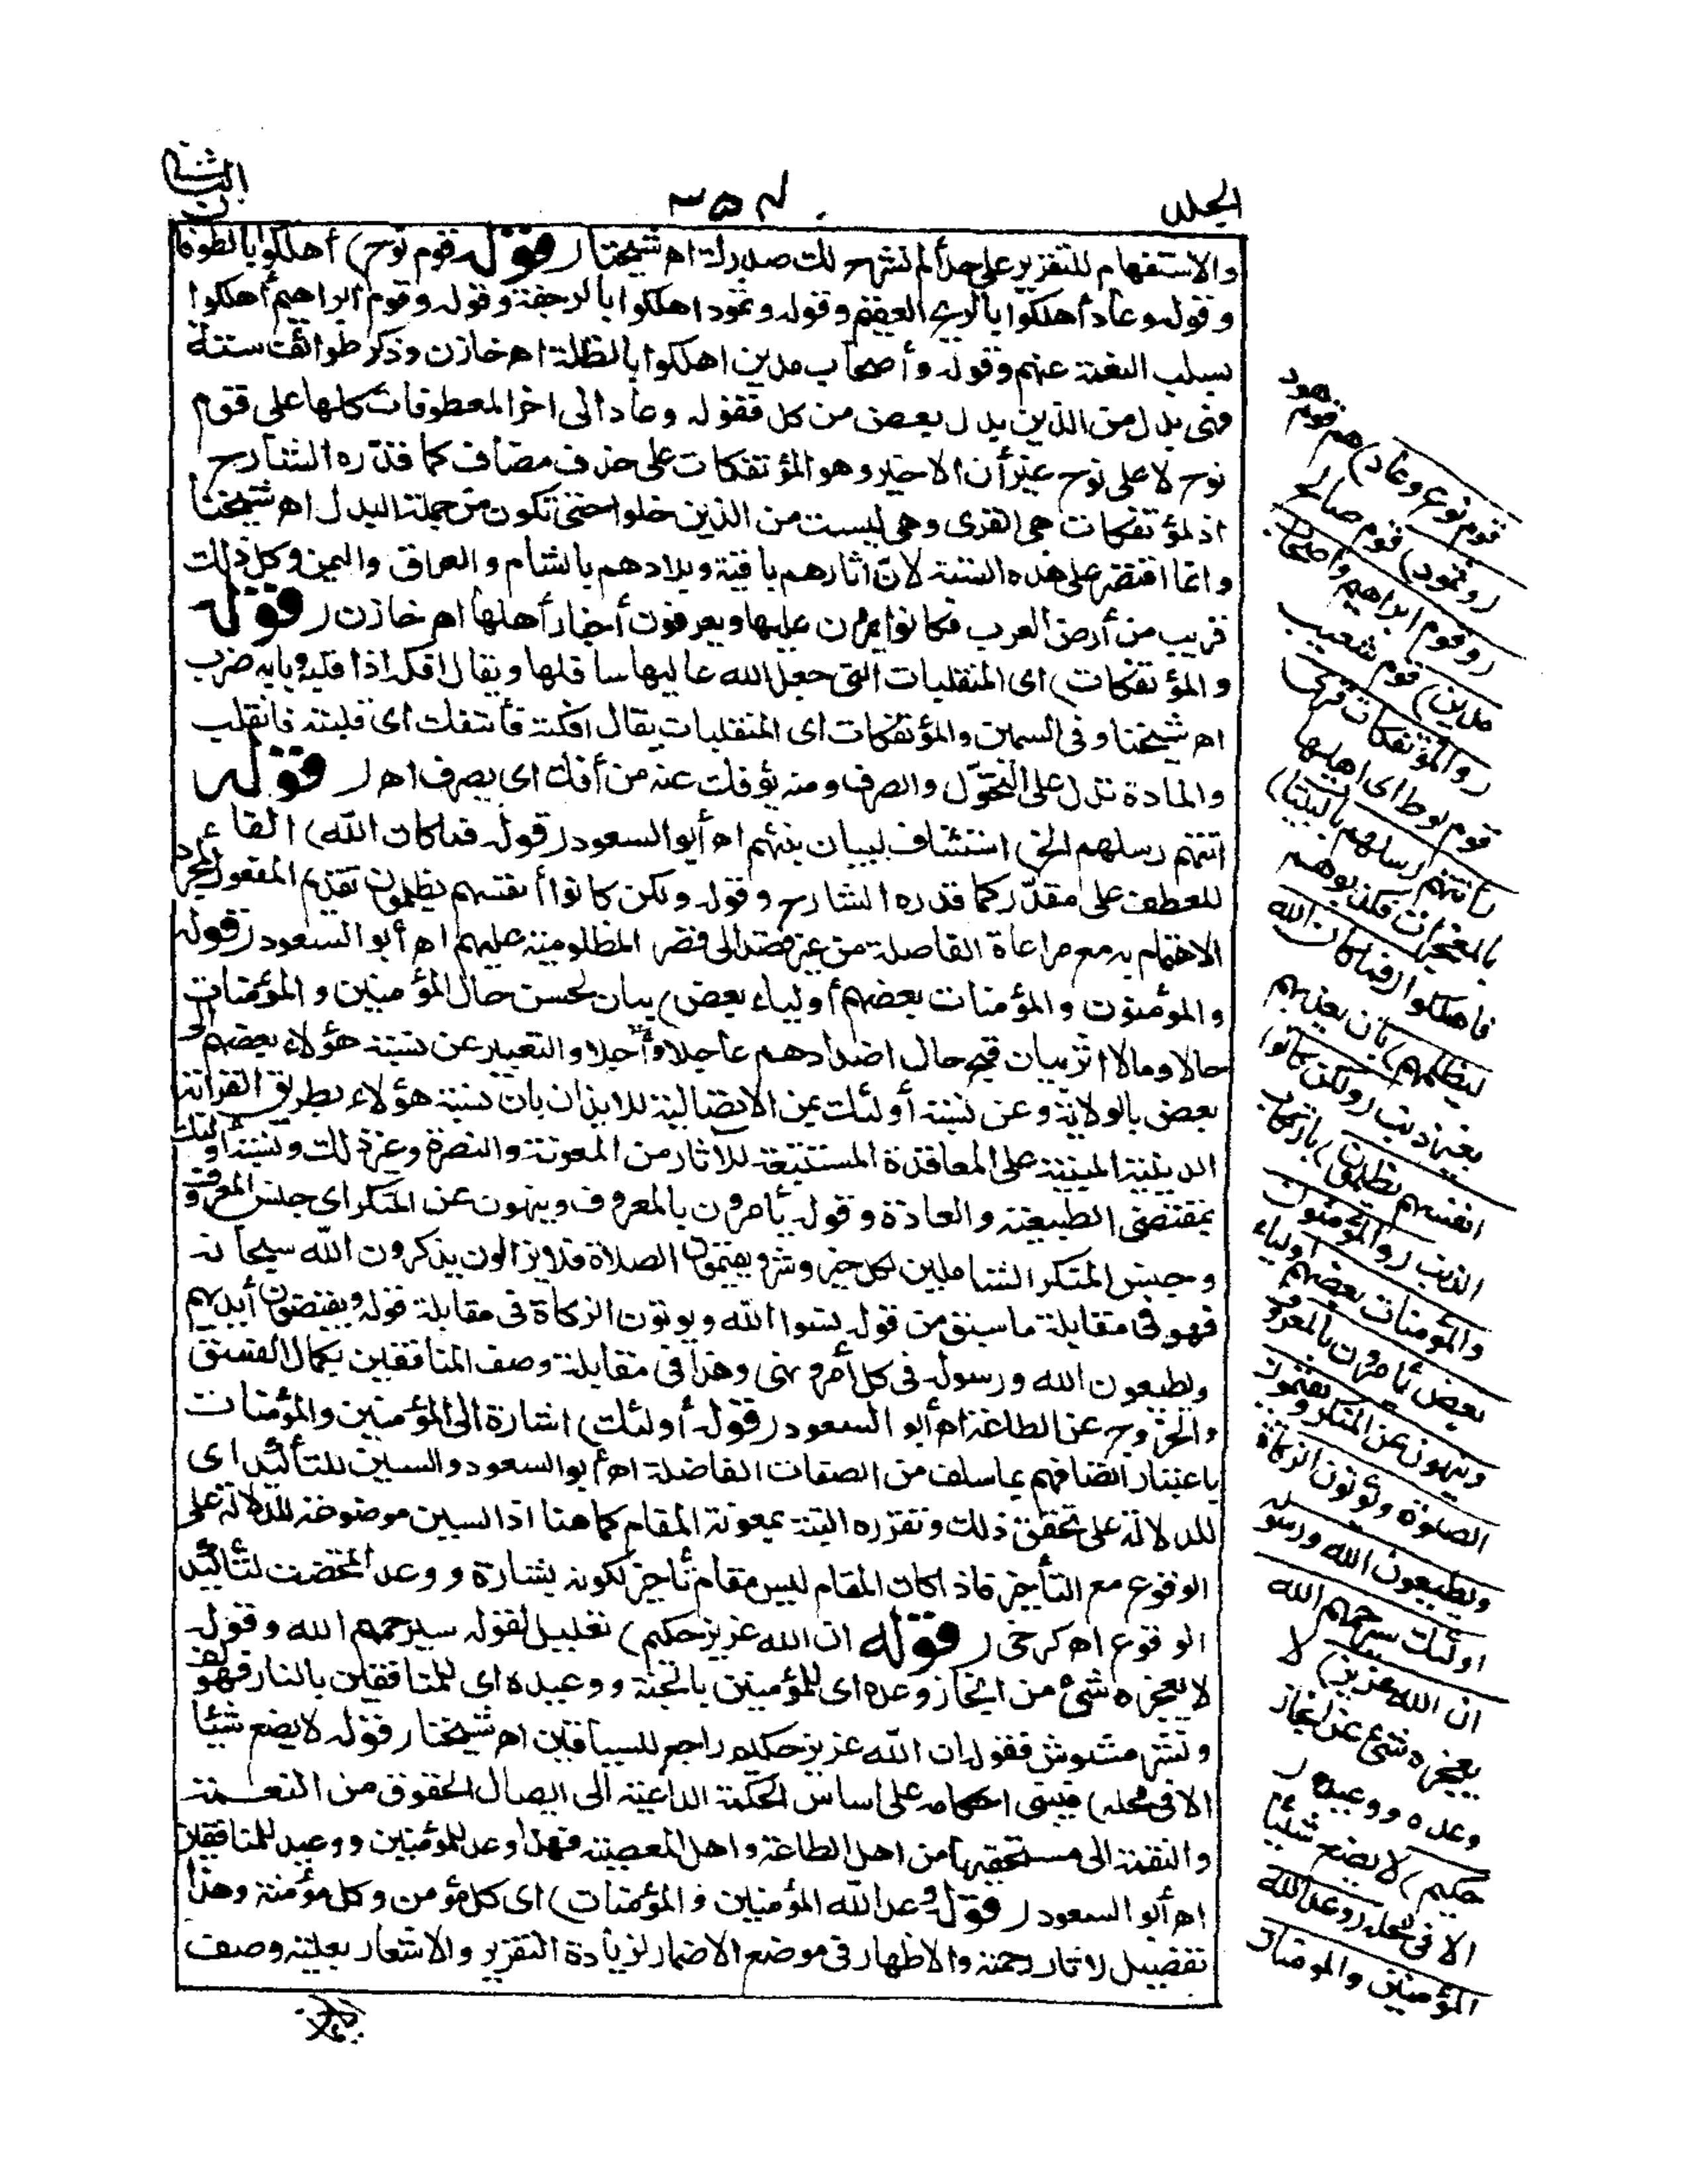 المجلد
٣٥٤
الثانى
والاستفهام للتقرير على حد ألم نشرح لك صدرك اه شيخنا (قوله قوم نوح) أهلكوا بالطوفان
وقوله وعاد أهلكوا بالريح العقيم وقوله وثمود اهلكوا بالرجفة وقوله وقوم ابراهيم أهلكوا
بسلب النعمة عنهم وقوله وأصحاب مدين اهلكوا بالظلة اه خازن وذكر طوائف ستة
فهى بدل من الذين بدل بعض من كل فقوله وعاد الى اخر المعطوفات كلها على قوم
نوح لا على نوح غير أن الاخير وهو المؤتفكات على حذف مضاف كما قدّره الشارح
اذ المؤتفكات هى القرى وهى ليست من الذين خلوا حتى تكون من جملة البدل اه شيخنا
وانما اقتصر على هذه الستة لانّ اثارهم باقية وبلادهم بالشام والعراق واليمن وكل ذلك
قريب من أرض العرب فكانوا يمرون عليها ويعرفون أخبار أهلها اه خازن (قوله
والمؤتفكات) اى المنقلبات التى جعل الله عاليها سافلها ويقال افكه اذا قلبه وبابه ضرب
اه شيخنا وفى السمين والمؤتفكات اى المنقلبات يقال افكته فأتفك اى قلبته فانقلب
والمادة تدل على التحوّل والصرف ومنه يؤفك عنه من أفك اى يصرف اه (قوله
اتتهم رسلهم الخ) استئناف لبيان نبئهم اه أبو السعود (قوله فما كان الله) الفاء
للعطف على مقدّر كما قدره الشارح وقوله ولكن كانوا أنفسهم يظلمون تقديم المفعول لمجرد
الاهتمام به مع مراعاة الفاصلة من غير قصد الى قصر المظلومية عليهم اه أبو السعود (قوله
والمؤمنون والمؤمنات بعضهم أولياء بعض) بيان لحسن حال المؤمنين والمؤمنات
حالا ومالا اثر بيان قبح حال اضدادهم عاجلا وأجلا والتعبير عن نسبة هؤلاء بعضهم الى
بعض بالولاية وعن نسبة أولئك بمن الاتصالية للايذان بان نسبة هؤلاء بطريق القرابة
الدينية المبنية على المعاقدة المستتبعة للآثار من المعونة والنصرة وغير ذلك ونسبة أولئك
بمقتضى الطبيعة والعادة وقوله يأمرون بالمعروف وينهون عن المنكر اى جنس المعروف
وجنس المنكر الشاملين لكل خير وشر ويقيمون الصلاة فلا يزالون يذكرون الله سبحانه
فهو فى مقابلة ما سبق من قوله نسوا الله ويوتون الزكاة فى مقابلة قوله ويقبضون أيديهم
ويطيعون الله ورسوله فى كل أمر ونهى وهذا فى مقابلة وصف المنافقين بكمال الفسق
والخروج عن الطاعة اه أبو السعود (قوله أولئك) اشارة الى المؤمنين والمؤمنات
باعتبار اتصافهم بما سلف من الصفات الفاضلة اه أبو السعود والسين للتأكيد اى
للدلالة على تحقق ذلك وتقرره البتة بمعونة المقام كما هنا اذ السين موضوعة للدلالة على
الوقوع مع التأخير فاذا كان المقام ليس مقام تأخير لكونه بشارة ووعد المحضت لتأكيد
الوقوع اه كرخى (قوله ان الله عزيز حكيم) تعليل لقوله سيرحمهم الله وقوله
لا يعجزه شئ من انجاز وعده اى للمؤمنين بالجنة ووعيده اى للمنافقين بالنار فهو لف
ونشر مشوش فقوله ان الله عزيز حكيم راجع للسياقين اه شيخنا (قوله لا يضع شيئا
الا فى محله) فيبنى احكامه على اساس الحكمة الداعية الى ايصال الحقوق من النعمة
والنقمة الى مستحقيها من اهل الطاعة واهل المعصية فهذا وعد للمؤمنين ووعيد للمنافقين
اه أبو السعود (قوله وعد الله المؤمنين والمؤمنات) اى كل مؤمن وكل مؤمنة وهذا
تفصيل لاثار رحمته والاظهار فى موضع الاضمار لزيادة التقرير والاشعار بعلية وصف
قوم نوح وعاد) هم قوم هود
(وثمود) قوم صالح
(وقوم ابراهيم واصحاب
مدين) قوم شعيب
(والمؤتفكات) قرى
قوم لوط اى اهلها
(أتتهم رسلهم بالبينات)
بالمعجزات فكذبوهم
فاهلكوا (فما كان الله
ليظلمهم) بان يعذبهم
بغير ذنب (ولكن كانوا
انفسهم يظلمون) بارتكاب
الذنب (والمؤمنون
والمؤمنات بعضهم اولياء
بعض يأمرون بالمعروف
وينهون عن المنكر ويقيمون
الصلوة ويؤتون الزكاة
ويطيعون الله ورسوله
اولئك سيرحمهم الله
ان الله عزيز) لا
يعجزه شئ عن انجاز
وعده ووعيده (
حكيم) لا يضع شيئا
الا فى محله (وعد الله
المؤمنين والمومنات